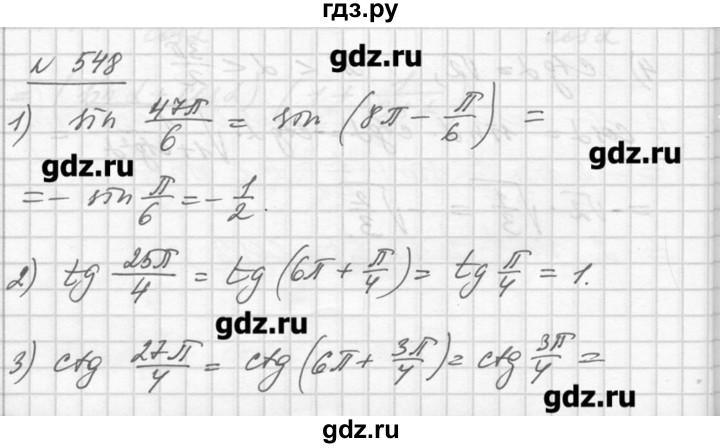 гдз.ру
gdz.ru
N 548
1) sin 47π/6 = sin (8π − π/6) =
gdz.ru
gdz.ru
= − sin π/6 = − 1/2.
2) tg 25π/4 = tg (6π + π/4) = tg π/4 = 1.
gdz.ru
3) ctg 27π/4 = ctg (6π + 3π/4) = ctg 3π/4 =
gdz.ru
gdz.ru